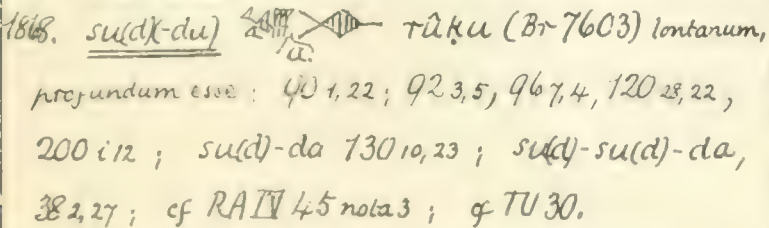 1868. su(d)(-du) rûḳu (Br 7603) lontanum,
profundum esse: 40 1,22; 92 3,5, 96 7,4, 120 28,22,
200 i 12; su(d)-da 130 10,23; su(d)-su(d)-da,
38 2,27; cf RA IV 45 nota 3; cf TU 30.